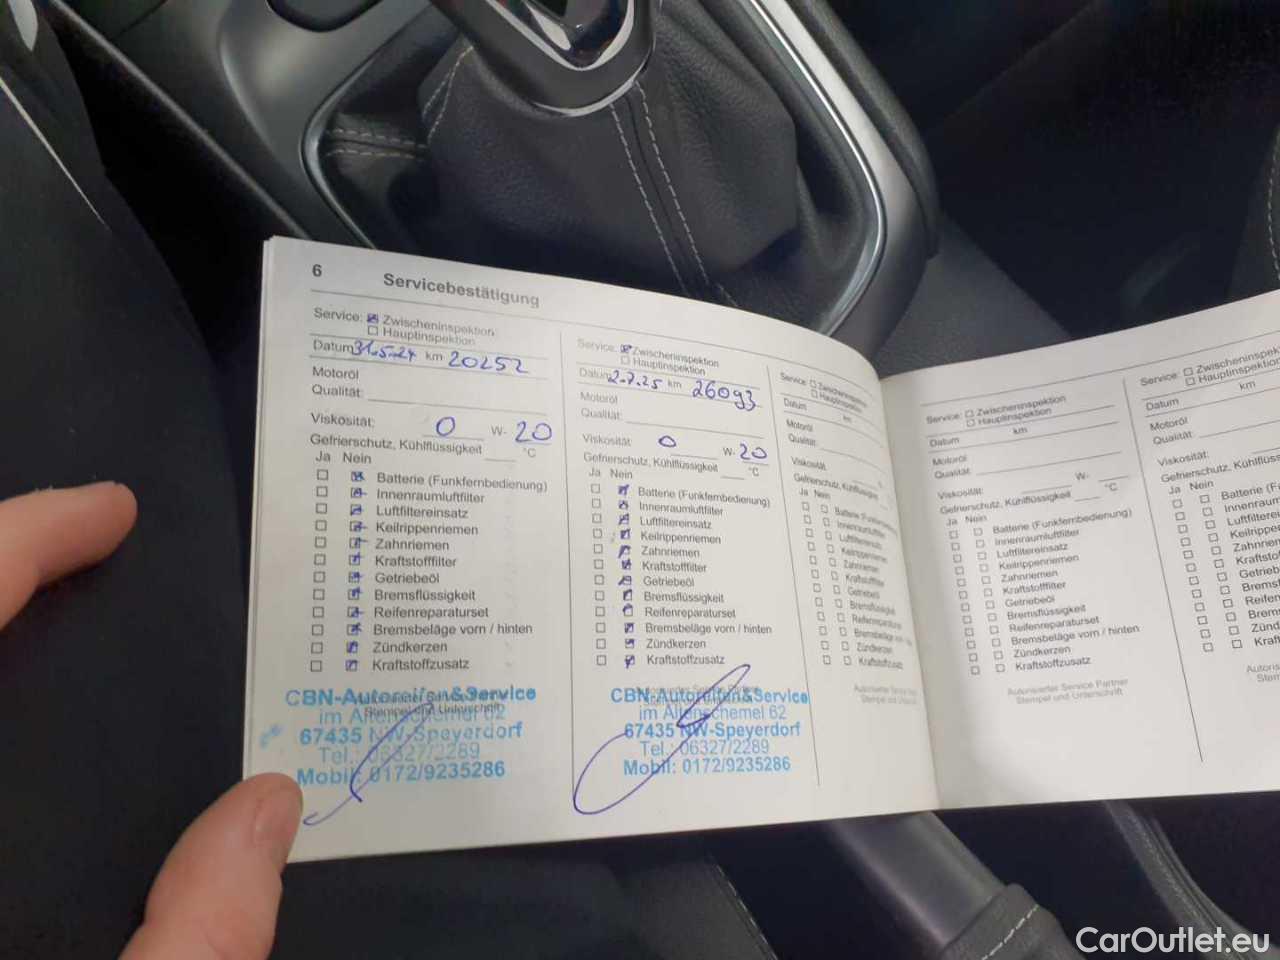 6 Servicebestätigung
Service: ☒ Zwischeninspektion
☐ Hauptinspektion
Datum 31.5.24 km 20252
Motoröl
Qualität:
Viskosität: 0 W- 20
Gefrierschutz, Kühlflüssigkeit °C
Ja Nein
☐ ☒ Batterie (Funkfernbedienung)
☐ ☒ Innenraumluftfilter
☐ ☒ Luftfiltereinsatz
☐ ☒ Keilrippenriemen
☐ ☒ Zahnriemen
☐ ☒ Kraftstofffilter
☐ ☒ Getriebeöl
☐ ☒ Bremsflüssigkeit
☐ ☒ Reifenreparaturset
☐ ☒ Bremsbeläge vorn / hinten
☐ ☒ Zündkerzen
☐ ☒ Kraftstoffzusatz
Stempel und Unterschrift
CBN-Autoreifen&Service
im Altenschemel 62
67435 NW-Speyerdorf
Tel.: 06327/2289
Mobil: 0172/9235286
Service: ☒ Zwischeninspektion
☐ Hauptinspektion
Datum 2.7.25 km 26093
Motoröl
Qualität:
Viskosität: 0 W- 20
Gefrierschutz, Kühlflüssigkeit °C
Ja Nein
☐ ☒ Batterie (Funkfernbedienung)
☐ ☒ Innenraumluftfilter
☐ ☒ Luftfiltereinsatz
☐ ☒ Keilrippenriemen
☐ ☒ Zahnriemen
☐ ☒ Kraftstofffilter
☐ ☒ Getriebeöl
☐ ☒ Bremsflüssigkeit
☐ ☒ Reifenreparaturset
☐ ☒ Bremsbeläge vorn / hinten
☐ ☒ Zündkerzen
☐ ☒ Kraftstoffzusatz
Stempel und Unterschrift
CBN-Autoreifen&Service
im Altenschemel 62
67435 NW-Speyerdorf
Tel.: 06327/2289
Mobil: 0172/9235286
Service: ☐ Zwischeninspektion
☐ Hauptinspektion
Datum km
Motoröl
Qualität:
Viskosität:
Gefrierschutz, Kühlflüssigkeit
Ja Nein
☐ ☐ Batterie (Funkfernbedienung)
☐ ☐ Innenraumluftfilter
☐ ☐ Luftfiltereinsatz
☐ ☐ Keilrippenriemen
☐ ☐ Zahnriemen
☐ ☐ Kraftstofffilter
☐ ☐ Getriebeöl
☐ ☐ Bremsflüssigkeit
☐ ☐ Reifenreparaturset
☐ ☐ Bremsbeläge vorn
☐ ☐ Zündkerzen
☐ ☐ Kraftstoffzusatz
Autorisierter
Stempel und
Service: ☐ Zwischeninspektion
☐ Hauptinspektion
Datum km
Motoröl
Qualität:
Viskosität: W-
Gefrierschutz, Kühlflüssigkeit °C
Ja Nein
☐ ☐ Batterie (Funkfernbedienung)
☐ ☐ Innenraumluftfilter
☐ ☐ Luftfiltereinsatz
☐ ☐ Keilrippenriemen
☐ ☐ Zahnriemen
☐ ☐ Kraftstofffilter
☐ ☐ Getriebeöl
☐ ☐ Bremsflüssigkeit
☐ ☐ Reifenreparaturset
☐ ☐ Bremsbeläge vorn / hinten
☐ ☐ Zündkerzen
☐ ☐ Kraftstoffzusatz
Autorisierter Service Partner
Stempel und Unterschrift
Service: ☐ Zwischeninspek
☐ Hauptinspektion
Datum km
Motoröl
Qualität:
Viskosität:
Gefrierschutz, Kühlflüss
Ja Nein
☐ ☐ Batterie (F
☐ ☐ Innenraum
☐ ☐ Luftfilterei
☐ ☐ Keilrippen
☐ ☐ Zahnriem
☐ ☐ Kraftsto
☐ ☐ Getrieb
☐ ☐ Brems
☐ ☐ Reifen
☐ ☐ Brem
☐ ☐ Zünd
☐ ☐ Kraf
Autoris
Stem
CarOutlet.eu